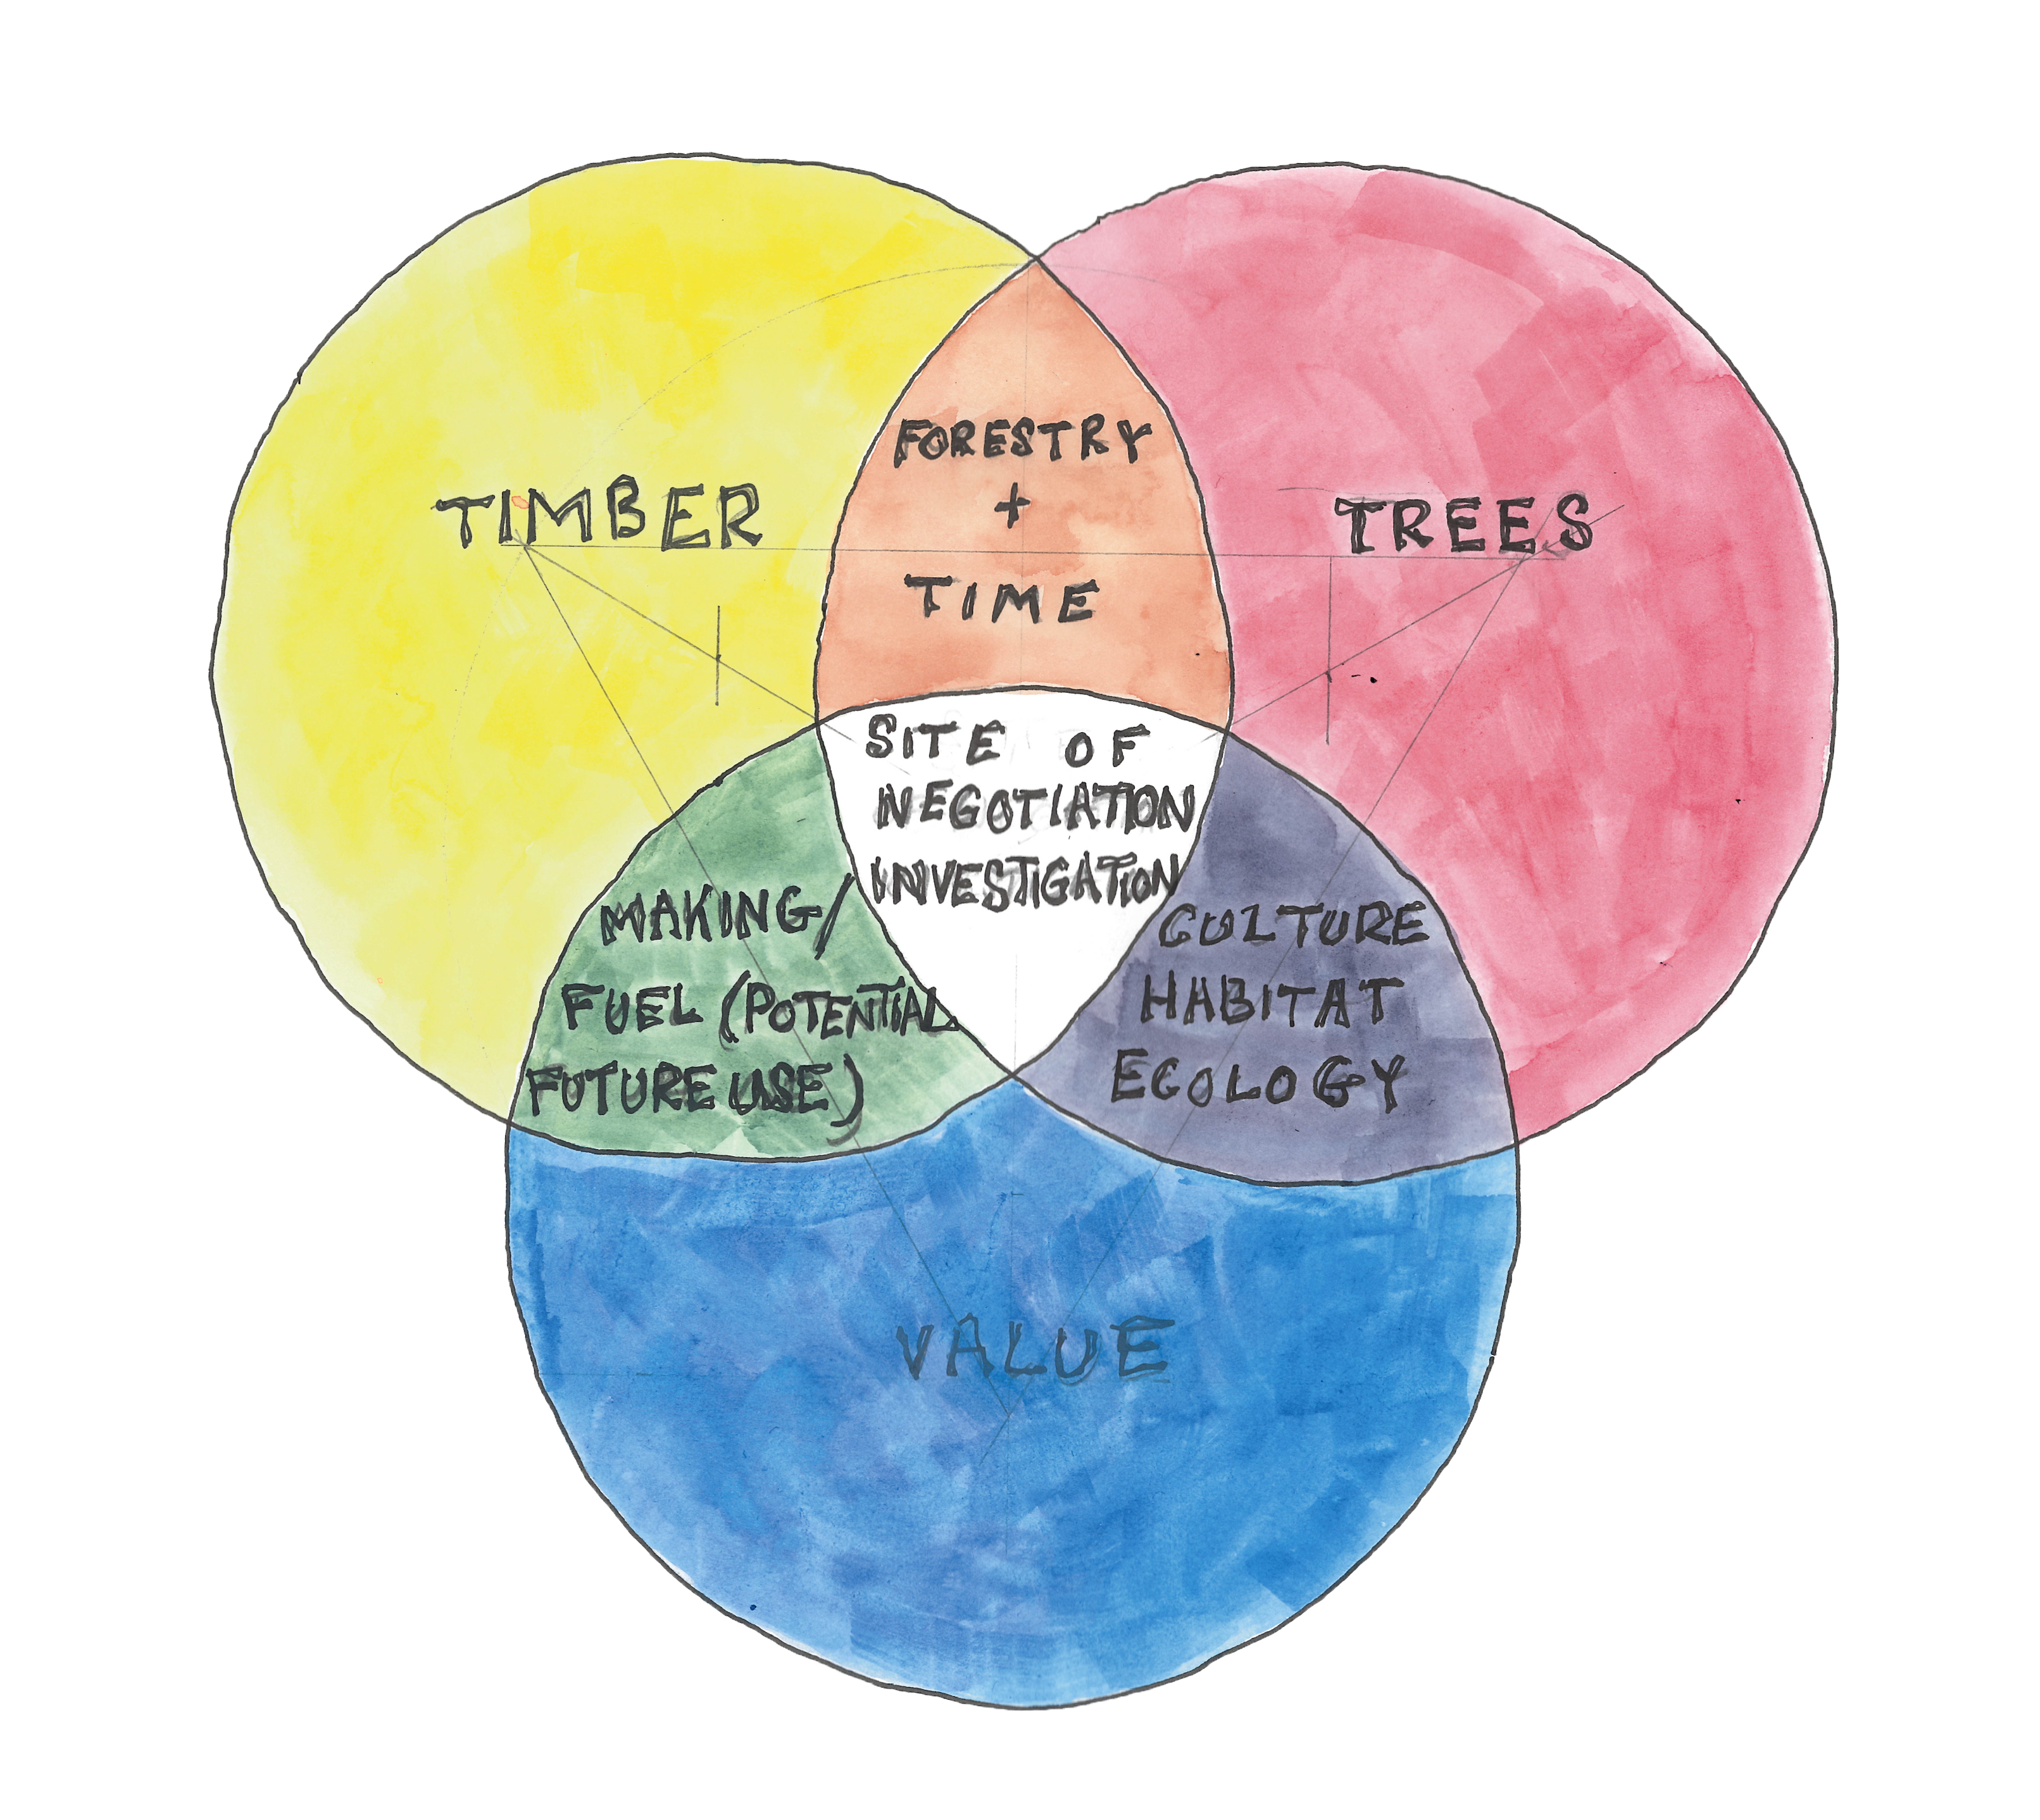 TIMBER
TREES
FORESTRY
+
TIME
SITE OF
NEGOTIATION
INVESTIGATION
MAKING/
FUEL (POTENTIAL
FUTURE USE)
CULTURE
HABITAT
ECOLOGY
VALUE